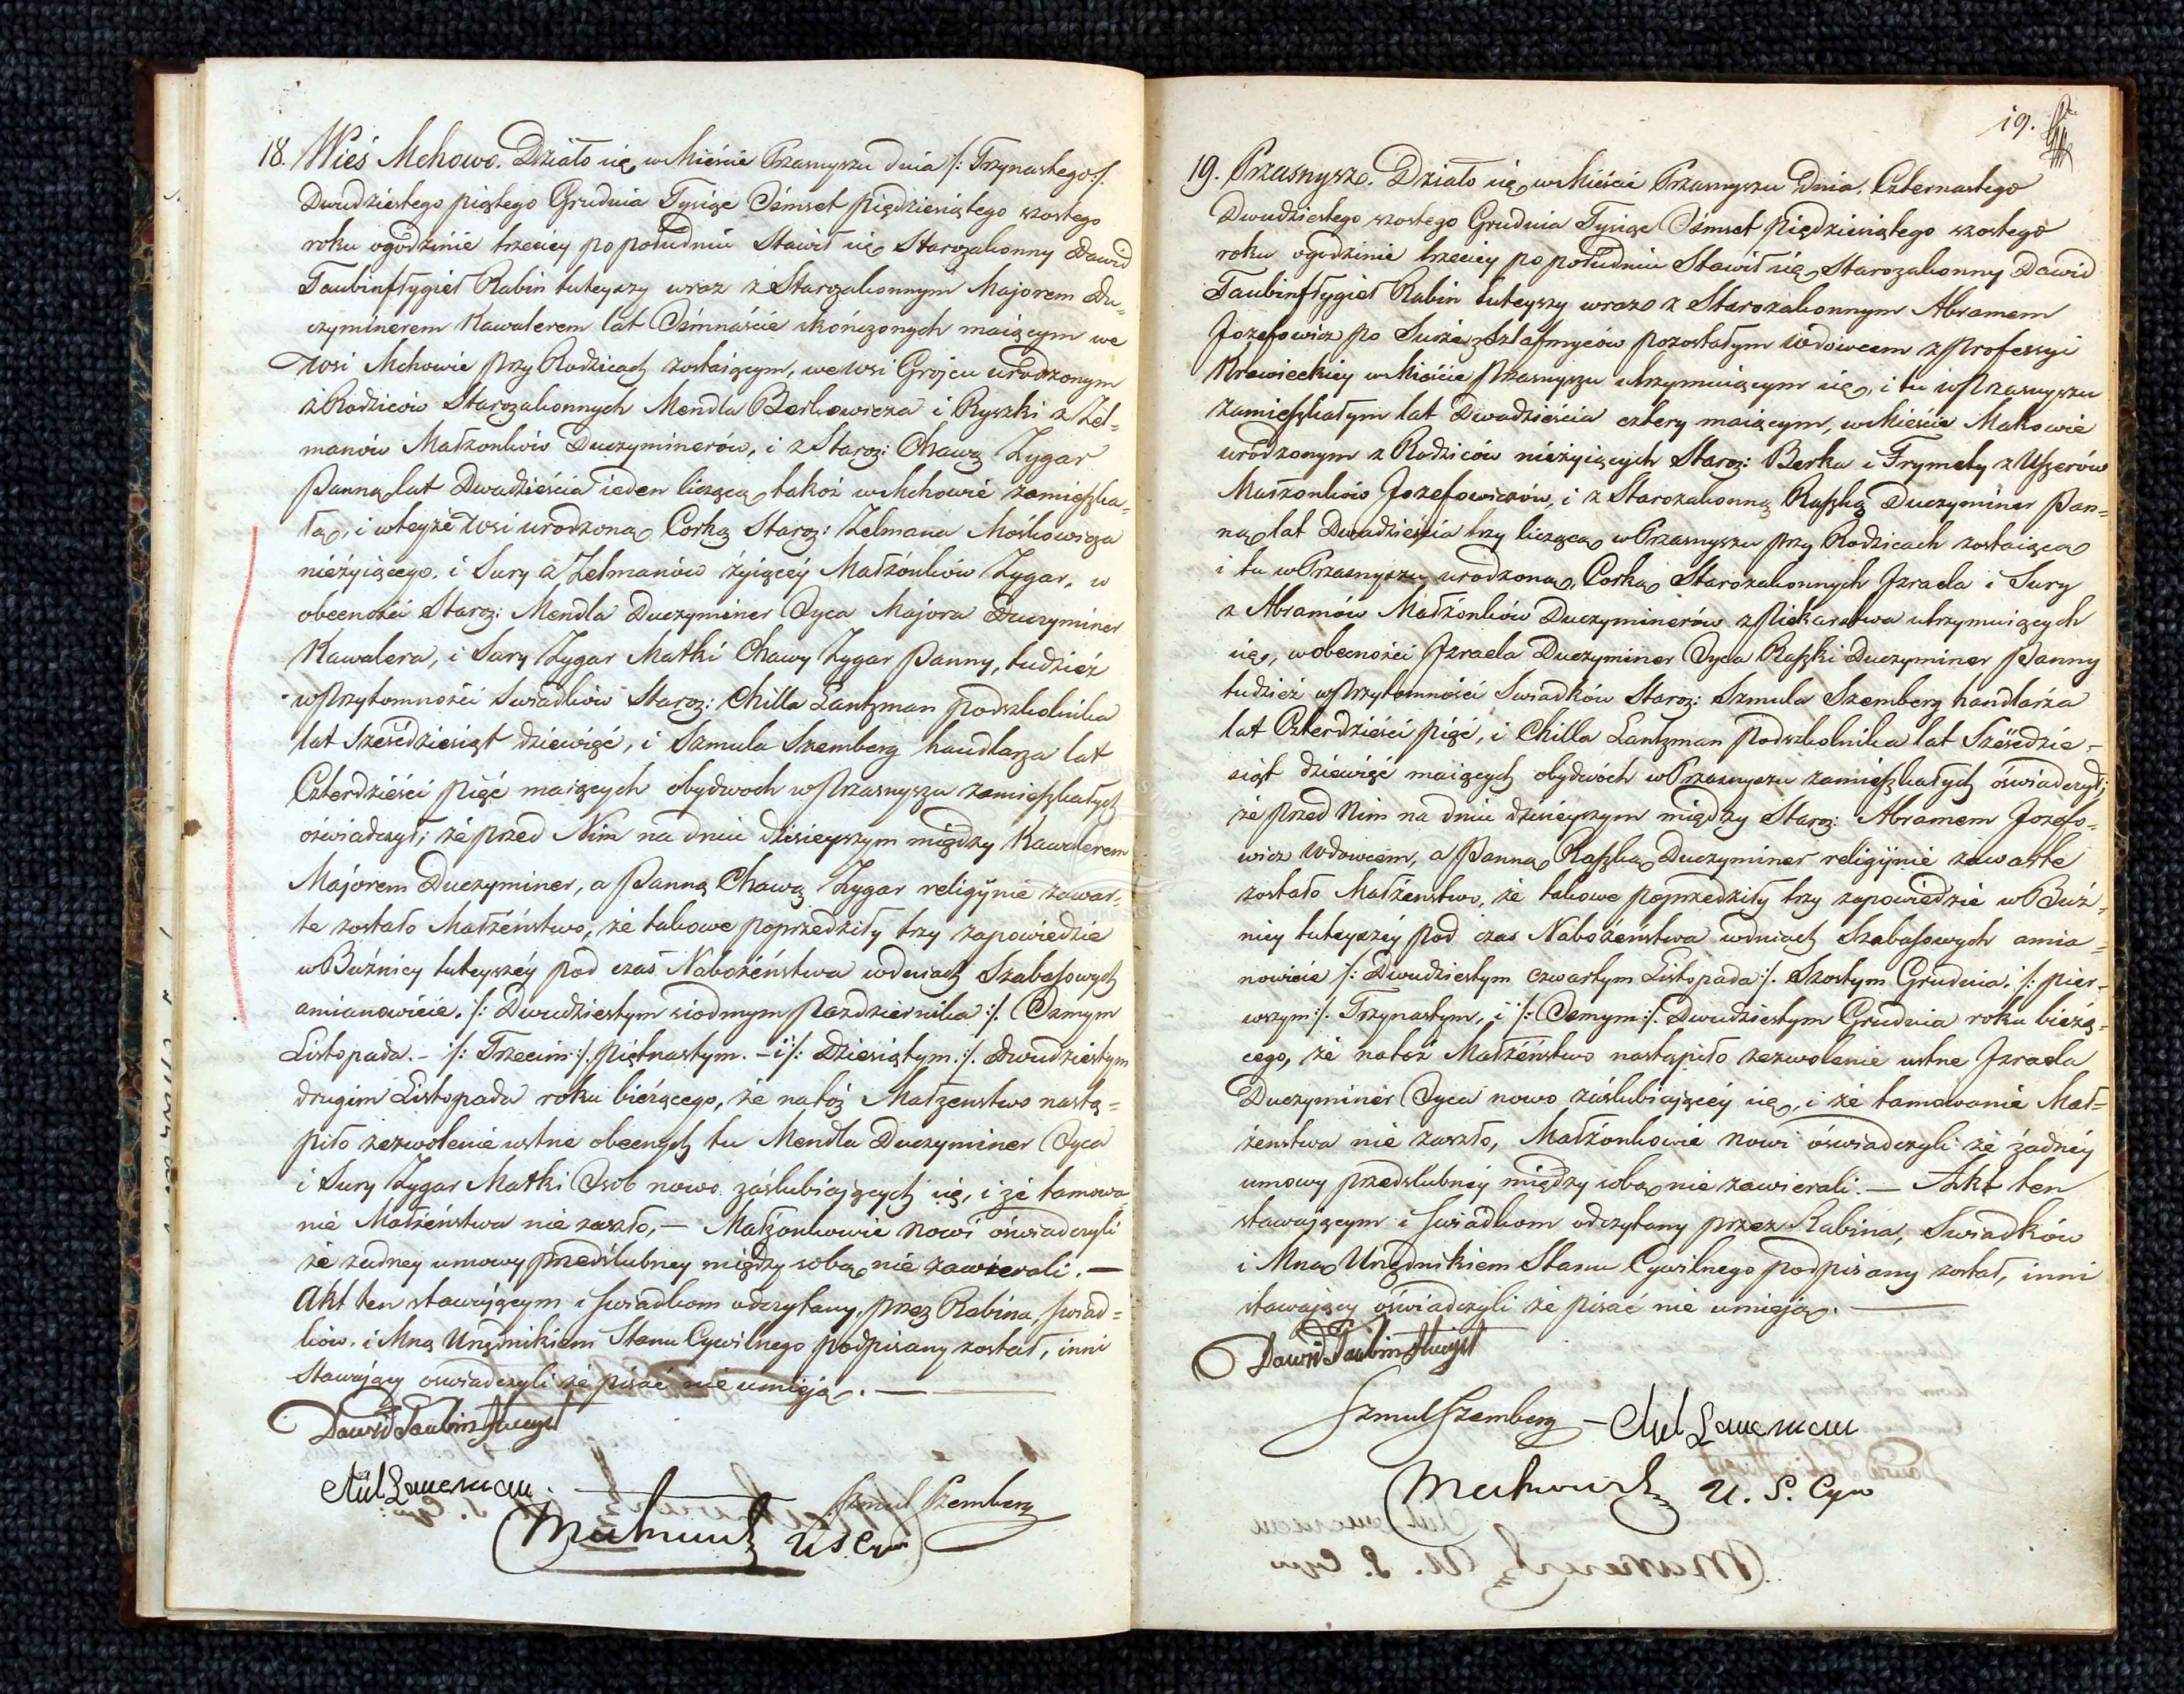 18. Wieś Mchowo. Działo się w Mieście Przasnyszu dnia /: Trzynastego :/
Dwudziestego piątego Grudnia Tysiąc Osmset piędziesiątego szostego
roku ogodzinie trzeciey popołudniu Stawił się Starozakonny Dawid
Taubinfłygiel Rabin tuteyszy wraz z Starozakonnym Majorem Du-
czyminerem Kawalerem lat Ośmnaście skończonych maiącym we
wsi Mchowie przy Rodzicach zostaiącym, we wsi Grójcu urodzonym
z Rodziców Starozakonnych Mendla Berkowicza i Ryszki z Zel-
manów Małżonków Duczyminerów, i z Staroz: Chawą Zygar
Panną lat Dwadzieścia ieden liczącą, takoż w Mchowie zamieszka-
łą, i wteyże wsi urodzoną Corką Staroz: Zelmana Mośkowicza
nieżyiącego i Sury z Zelmanów żyiącéy Małżónków Zygar, w
obecności Staroz: Mendla Duczyminer Oyca Majora Duczyminer
Kawalera, i Sury Zygar Matki Chawy Zygar Panny, tudzież
w przytomności Swiadków Staroz: Chilla Lantzman podszkolnika
lat Sześćdziesiąt dziewięć, i Szmula Szemberg handlarza lat
Czterdzieści pięć maiących obydwoch w Przasnyszu zamieszkałych
oświadczył; że przed Nim na dniu dzisieyszym między Kawalerem
Majorem Duczyminer, a Panną Chawą Zygar religijnie zawar-
te zostało Małżéństwo, że takowe poprzedziły trzy zapowiedzie
w Bużnicy tuteyszéy pod czas Nabożéństwa w dniach Szabasowych
amianowicie. /: Dwudziestym siodmym Pazdziernika :/. Osmym
Listopada. - /: Trzecim :/. piętnastym. - i /: Dziesiątym. :/. Dwudziestym
drugim Listopada roku bieżącego, że natóż Małżenstwo nastą-
piło zezwolenie ustne obecnych tu Mendla Duczyminer Oyca
i Sury Zygar Matki Osob nowo zaślubiających się, i że tamowa-
nie Małżéństwa nie zaszło, — Małżonkowie Nowi oświadczyli
że żadney umowy przedślubney między sobą nie zawierali. —
Akt ten stawającym i swiadkom odczytany, przez Rabina, swiad-
ków. i Mną Urzędnikiem Stanu Cywilnego podpisany został, inni
Stawający oswiadczyli że pisać nie umieją. —
Dawid Taubinfliugel
Szmul Szemberg
19.
19. Przasnysz. Działo się w Mieście Przasnyszu Dnia. Czternastego
Dwudziestego szostego Grudnia Tysiąc Osmset piędziesiątego szostego
roku ogodzinie trzeciey popołudniu Stawił się Starozakonny Dawid
Taubinfłygiel Rabin tuteyszy wraz z Starozakonnym Abramem
Jozefowicz po Surze z Szlafmyców pozostałym wdowcem z professyi
Krawieckiey w Mieście Przasnyszu utrzymuiącym się, i tu w Przasnyszu
zamieszkałym lat Dwadzieścia cztery maiącym, w Mieście Makowie
urodzonym z Rodziców nieżyiących Staroz: Berka i Frymety z Uszerów
Małżonków Jozefowiczów, i z Starozakonną Raszką Duczyminer Pan-
ną lat Dwadzieścia trzy liczącą w Przasnyszu przy Rodzicach zostaiącą
i tu w Przasnyszu urodzoną, Corką Starozakonnych Izraela i Sury
z Abramów Małżonków Duczyminerów z piekarstwa utrzymuiących
się, w obecności Izraela Duczyminer Oyca Raszki Duczyminer Panny
tudzież w przytomności Swiadków Staroz: Szmula Szemberg handlarża
lat Czterdzieści pięć, i Chilla Lantzman podszkolnika lat Sześćdzie-
siąt dziewięć maiących obydwóch w Przasnyszu zamieszkałych óświadczył;
że przed Nim na dniu dzisieyszym między Staroz: Abramem Jozefo-
wicz wdowcem, a Panną Raszką Duczyminer religijnie zawarte
zostało Małżenstwo, że takowe poprzedziły trzy zapowiedzie w Buż-
nicy tuteyszéy pod czas Nabożeństwa w dniach Szabasowych amia-
nowicie /: Dwudziestym czwartym Listopada :/. Szostym Grudnia. /: pier-
wszym :/. Trzynastym, i /: Osmym :/. Dwudziestym Grudnia roku bieżą-
cego, że natóż Małżéństwo nastąpiło zezwolenie ustne Izraela
Duczyminer Oyca nowo zaślubiającéy się, i że tamowanie Mał-
żenstwa nie zaszło, Małżonkowie Nowi óświadczyli że żadnéy
umowy przedślubnéy między sobą nie zawierali. — Akt ten
stawającym i swiadkom odczytany przez Rabina, Swiadków
i Mną Urzędnikiem Stanu Cywilnego podpisany został, inni
stawający oświadczyli że pisać nie umieją. —
Dawid Taubinfliugel
Szmul Szemberg —
U. S. Cyw